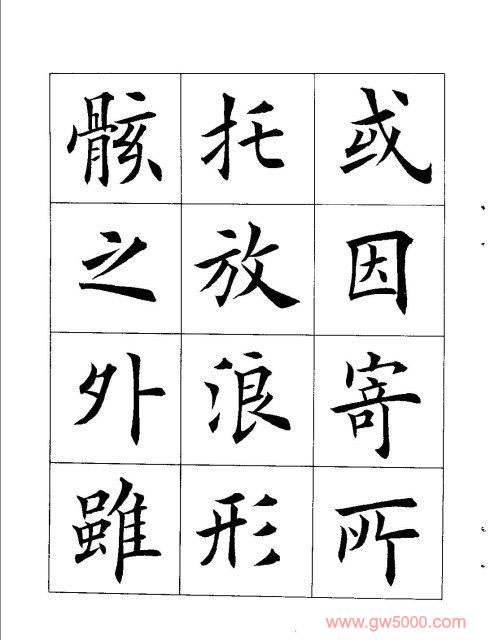 或因寄所
托放浪形
骸之外雖
www.gw5000.com